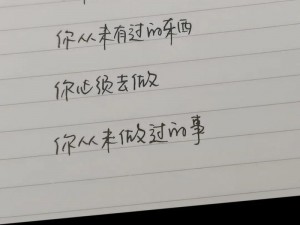 你从未有过的东西
你必须去做
你从未做过的事